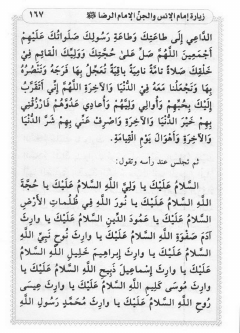 زيارة إمام الإنس والجنّ الإمام الرضا ١٦٧
الدَّاعِي إِلَى طَاعَتِكَ وَطَاعَةِ رَسُولِكَ صَلَوَاتُكَ عَلَيْهِمْ
أَجْمَعِينَ اللَّهُمَّ صَلِّ عَلَى حُجَّتِكَ وَوَلِيِّكَ الْقَائِمِ فِي
خَلْقِكَ صَلَاةً تَامَّةً نَامِيَةً بَاقِيَةً تُعَجِّلُ بِهَا فَرَجَهُ وَتَنْصُرُهُ
بِهَا وَتَجْعَلُنَا مَعَهُ فِي الدُّنْيَا وَالآخِرَةِ اللَّهُمَّ إِنِّي أَتَقَرَّبُ
إِلَيْكَ بِحُبِّهِمْ وَأُوَالِي وَلِيَّهُمْ وَأُعَادِي عَدُوَّهُمْ فَارْزُقْنِي
بِهِمْ خَيْرَ الدُّنْيَا وَالآخِرَةِ وَاصْرِفْ عَنِّي بِهِمْ شَرَّ الدُّنْيَا
وَالآخِرَةِ وَأَهْوَالَ يَوْمِ الْقِيَامَةِ.
ثم تجلس عند رأسه وتقول:
السَّلَامُ عَلَيْكَ يَا وَلِيَّ اللَّهِ السَّلَامُ عَلَيْكَ يَا حُجَّةَ
اللَّهِ السَّلَامُ عَلَيْكَ يَا نُورَ اللَّهِ فِي ظُلُمَاتِ الأَرْضِ
السَّلَامُ عَلَيْكَ يَا عَمُودَ الدِّينِ السَّلَامُ عَلَيْكَ يَا وَارِثَ
آدَمَ صَفْوَةِ اللَّهِ السَّلَامُ عَلَيْكَ يَا وَارِثَ نُوحٍ نَبِيِّ اللَّهِ
السَّلَامُ عَلَيْكَ يَا وَارِثَ إِبْرَاهِيمَ خَلِيلِ اللَّهِ السَّلَامُ
عَلَيْكَ يَا وَارِثَ إِسْمَاعِيلَ ذَبِيحِ اللَّهِ السَّلَامُ عَلَيْكَ يَا
وَارِثَ مُوسَى كَلِيمِ اللَّهِ السَّلَامُ عَلَيْكَ يَا وَارِثَ عِيسَى
رُوحِ اللَّهِ السَّلَامُ عَلَيْكَ يَا وَارِثَ مُحَمَّدٍ رَسُولِ اللَّهِ